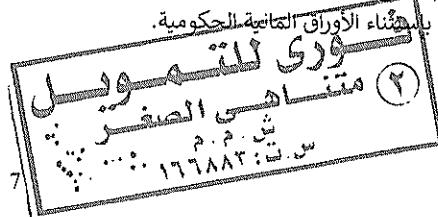 باستثناء الأوراق المالية الحكومية.
فورى للتمويل
٢ متناهى الصغر
ش . م . م
س . ت : ١٦٦٨٨٣
7